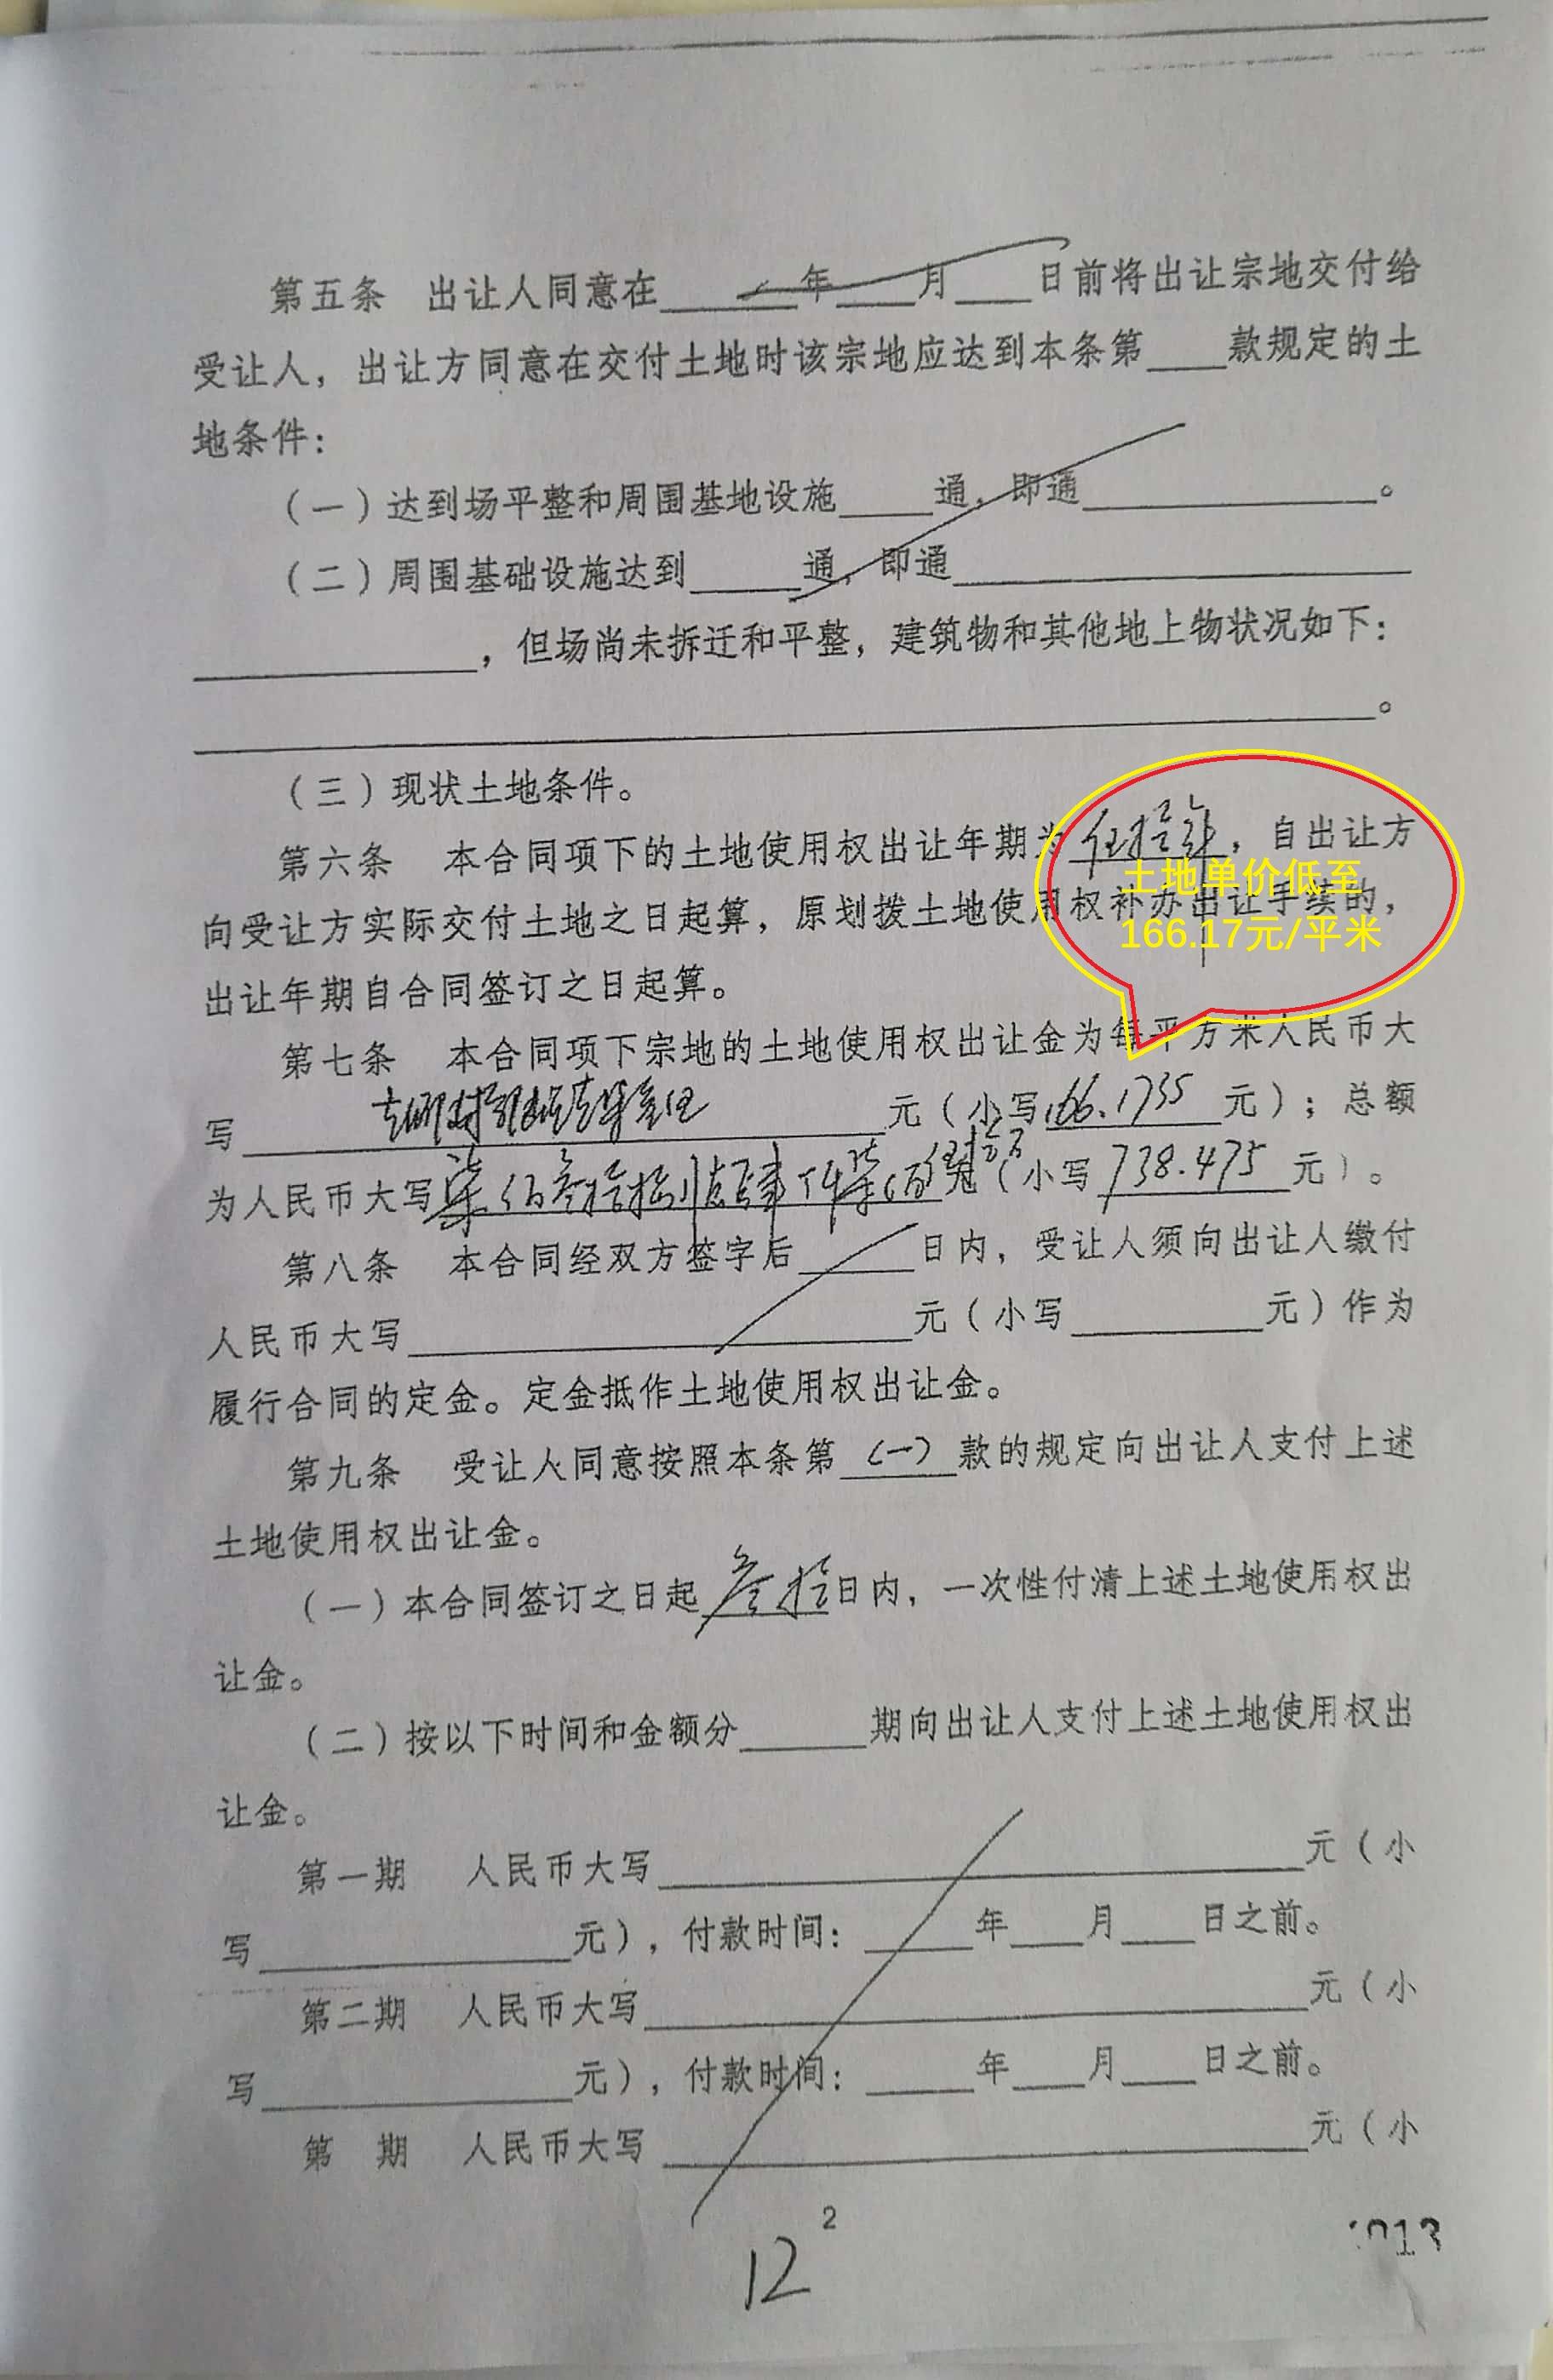 第五条 出让人同意在____年____月____日前将出让宗地交付给
受让人，出让方同意在交付土地时该宗地应达到本条第____款规定的土
地条件：
（一）达到场平整和周围基地设施____通，即通________。
（二）周围基础设施达到____通，即通________
________，但场尚未拆迁和平整，建筑物和其他地上物状况如下：
________。
（三）现状土地条件。
第六条 本合同项下的土地使用权出让年期为伍拾年，自出让方
土地单价低至
向受让方实际交付土地之日起算，原划拨土地使用权补办出让手续的，
166.17元/平米
出让年期自合同签订之日起算。
第七条 本合同项下宗地的土地使用权出让金为每平方米人民币大
写________元（小写166.1735元）；总额
为人民币大写柒佰叁拾捌点肆柒伍万元（小写738.475元）。
第八条 本合同经双方签字后____日内，受让人须向出让人缴付
人民币大写________元（小写____元）作为
履行合同的定金。定金抵作土地使用权出让金。
第九条 受让人同意按照本条第（一）款的规定向出让人支付上述
土地使用权出让金。
（一）本合同签订之日起叁拾日内，一次性付清上述土地使用权出
让金。
（二）按以下时间和金额分____期向出让人支付上述土地使用权出
让金。
第一期 人民币大写________元（小
写________元），付款时间：____年____月____日之前。
第二期 人民币大写________元（小
写________元），付款时间：____年____月____日之前。
第 期 人民币大写________元（小
2
12